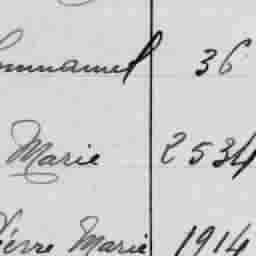 Emmanuel 36
Marie 2534
Pierre Marie 1914